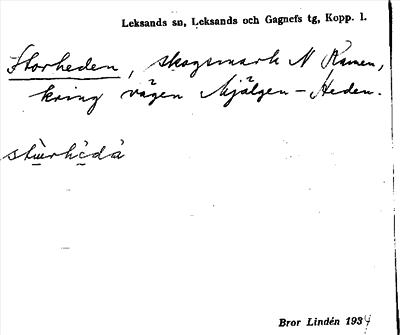 Leksands sn, Leksands och Gagnefs tg, Kopp. l.
Storheden, skogsmark N Ramen,
kring vägen Mjälgen – Heden.
Bror Lindén 1934